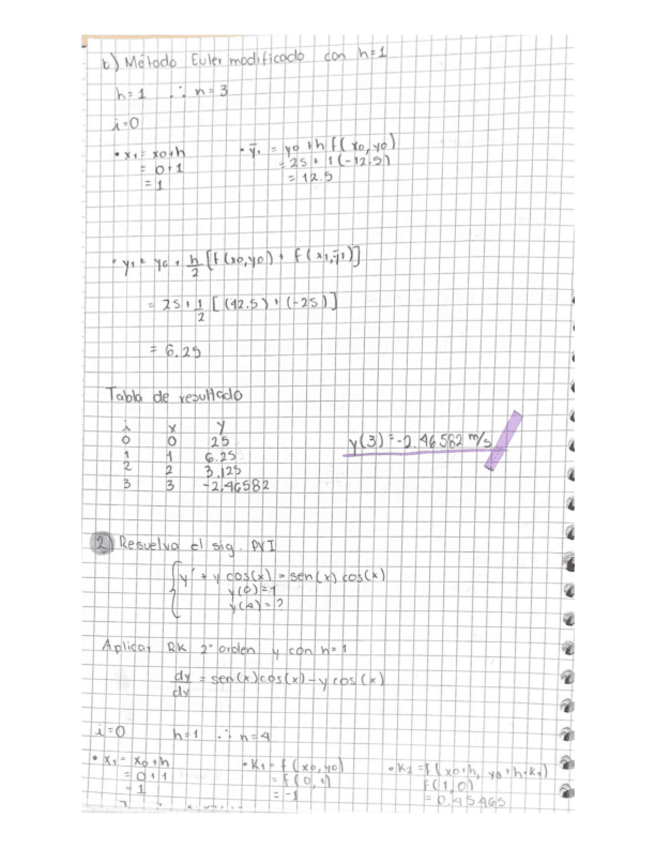 b) Método Euler modificado con h=1
h=1 ∴ n=3
i=0
• x1 = x0+h
= 0+1
= 1
• ȳ1 = y0 + h f(x0, y0)
= 25 + 1(-12.5)
= 12.5
• y1 = y0 + h/2 [f(x0,y0) + f(x1,ȳ1)]
= 25 + 1/2 [(12.5) + (-25)]
= 6.25
Tabla de resultado
i x y
0 0 25
1 1 6.25
2 2 3.125
3 3 -2.46582
y(3) = -2.46582 m/s
2) Resuelva el sig. PVI
y' + y cos(x) = sen(x) cos(x)
y(0)=1
y(4)=?
Aplicar RK 2° orden y con h=1
dy/dx = sen(x)cos(x) - y cos(x)
i=0 h=1 ∴ n=4
• x1 = x0+h
= 0+1
= 1
• K1 = f(x0,y0)
= f(0,1)
= -1
• K2 = f(x0+h, y0+h·k1)
f(1,0)
= 0.45465